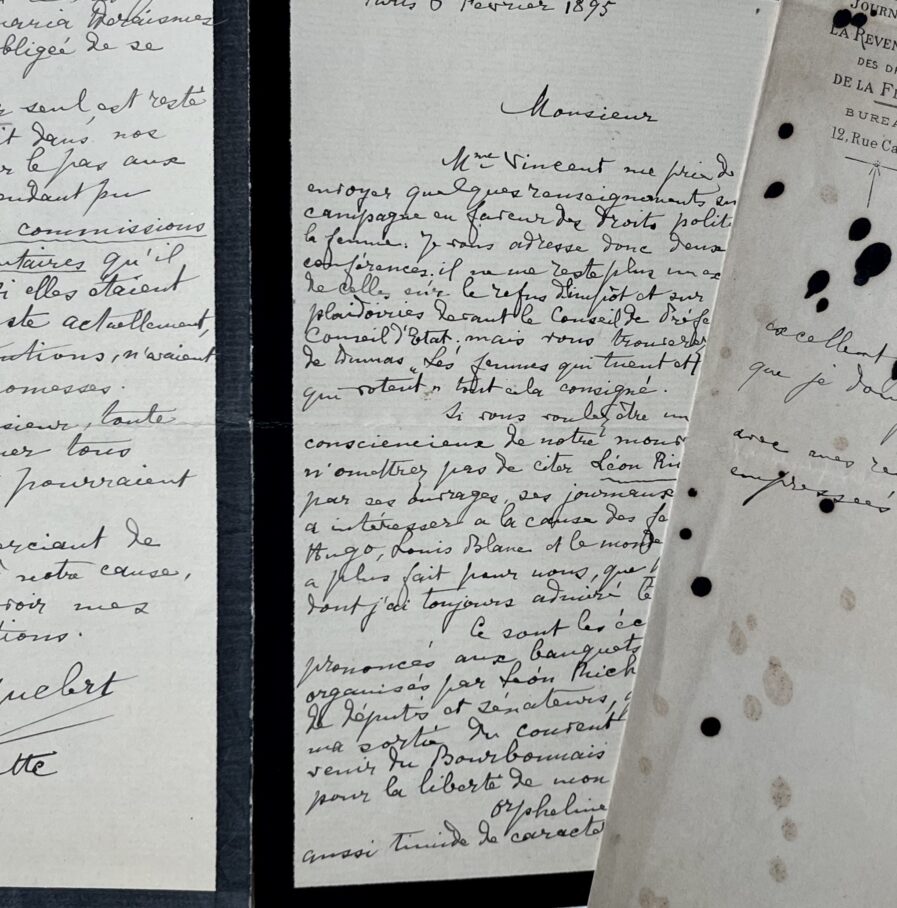 Maria Deraismes
obligée de se
seul est resté
dans nos
le pas aux
pu
commissions
qu'il
si elles étaient
actuellement,
n'avaient
toute
tous
pourraient
de
notre cause,
mes
Paris 6 Février 1895
Monsieur
Mme Vincent me prie de
envoyer quelques renseignements
campagne en faveur des Droits
la femme. Je vous adresse donc deux
conférences. il ne me reste plus
de celles sur le refus d'impôt et sur
plaidoiries devant le Conseil de
Conseil d'Etat; mais vous
de Dumas "Les femmes qui tuent et
qui votent" tout cela consigné.
Si vous voulez être un
consciencieux de notre
n'omettrez pas de citer Léon
par ses ouvrages, ses journaux
a intéresser a la cause des
Hugo, Louis Blanc et le monde
a plus fait pour nous, que
dont j'ai toujours admiré
Ce sont les
prononcés aux banquets
organisés par Léon Rich
de députés et sénateurs,
ma sortie du couvent
venir du Bourbonnais
pour la liberté de mon
orpheline
aussi timide de
JOURN
LA REVEN
DES
DE LA
BUREA
12, Rue Ca
excellent
que je
avec mes
empressées